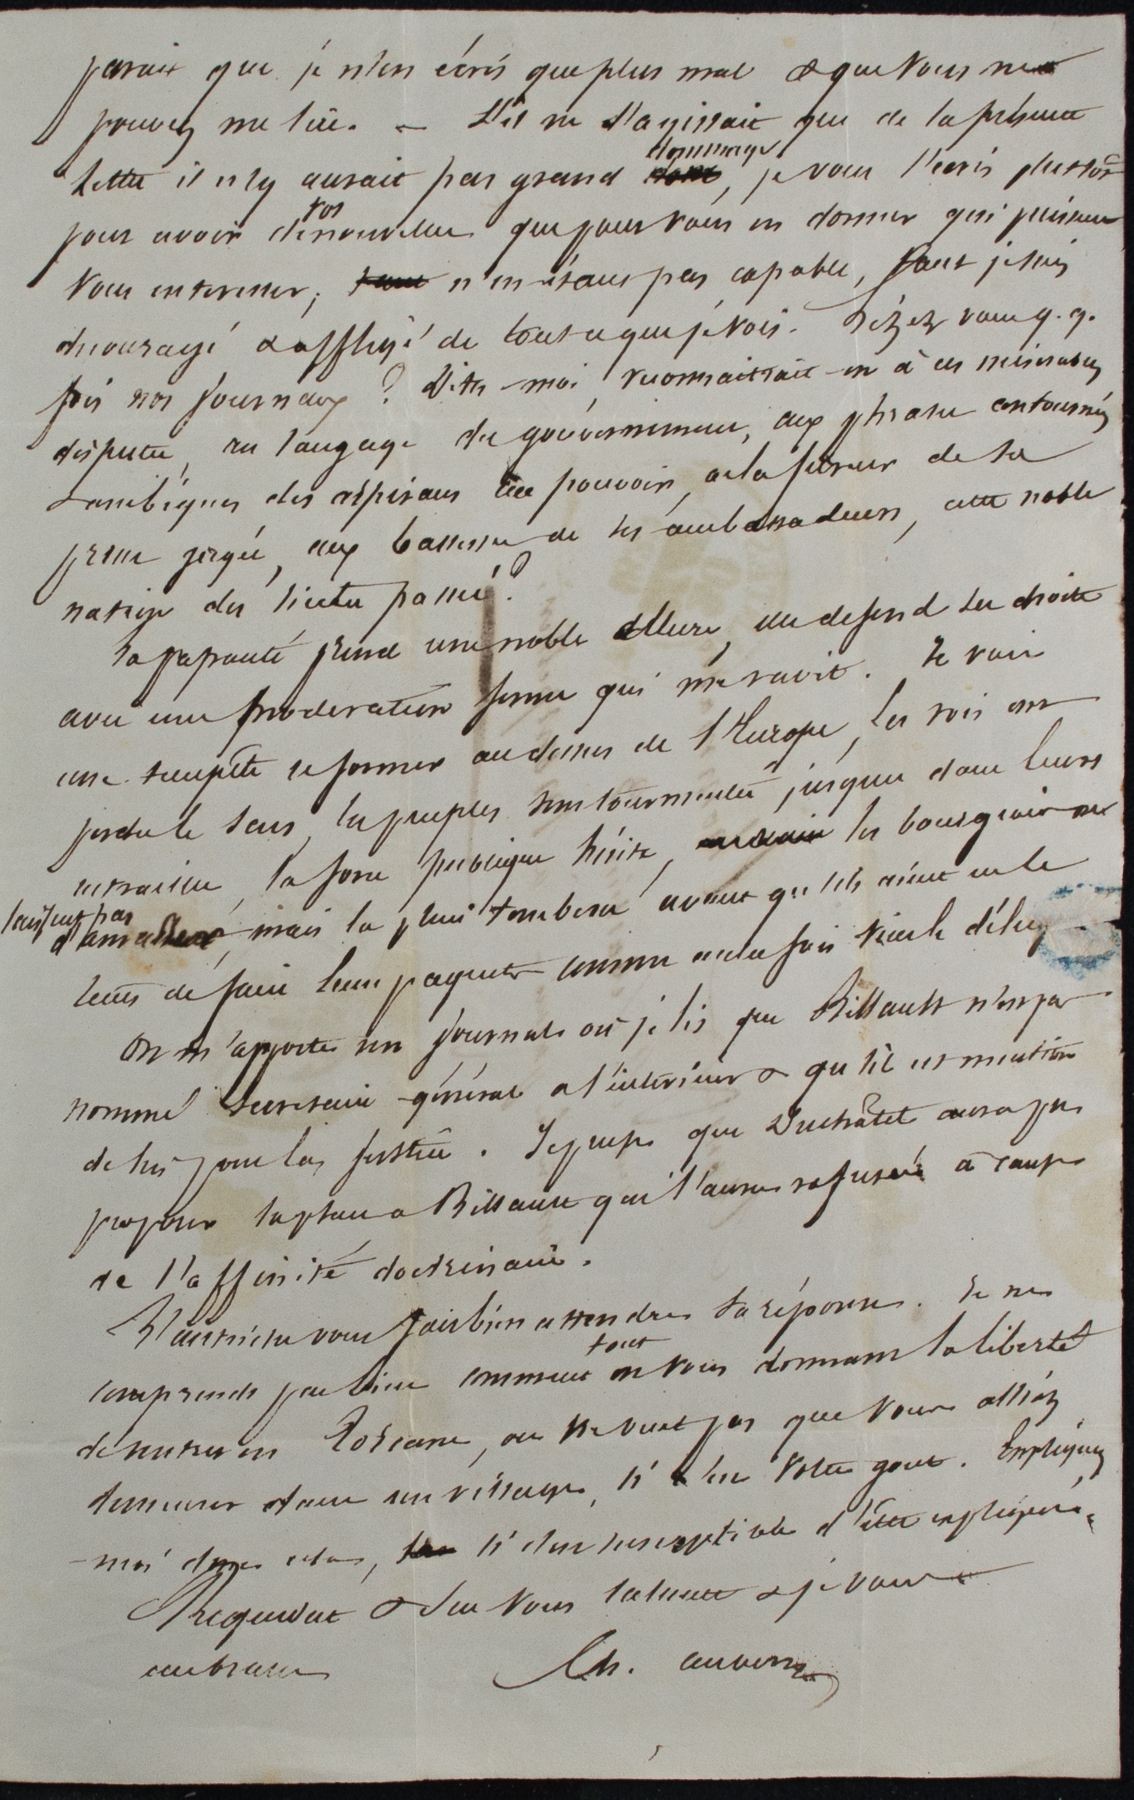 parait que je n'en écris que plus mal & que vous ne
pouvez me lire. — S'il ne s'agissait que de la présente
lettre il n'y aurait pas grand dommage, je vous l'écris plustôt
pour avoir de vos nouvelles que pour vous en donner qui puissent
vous interesser; n'en étant pas capable, tant je suis
découragé & affligé de tout ce que je vois. Lisez vous q. q.
fois nos journaux? Dites-moi, reconnaitrait-on à ces misérables
disputes, au langage du gouvernement, aux phrases contournées
& ambigues des aspirans au pouvoir, a la fureur de sa
presse gagée, aux bassesses de ses ambassadeurs, cette noble
nation des siecles passés?
la papauté prend une noble allure, elle defend ses droits
avec une moderation ferme qui me ravit. Je vois
une tempête se former au dessus de l'Europe, les rois ont
perdu le sens, les peuples sont tourmentés jusques dans leurs
entrailles, la force publique hésite, les bourgeois ne
laissent pas d'amasser, mais la pluie tombera avant qu'ils aient eu le
tems de faire leurs paquets comme autrefois vint le déluge
On m'apporte un journal où je lis que Billault n'est pas
nommé secretaire général a l'intérieur & qu'il est mention
de lui pour la justice. Je pense que Duchatel aura pu
proposer la place a Billault qui l'aura refusée à cause
de l'affinité doctrinaire.
L'autriche vous fait bien attendre sa réponse. Je ne
comprends pas bien comment tout en vous donnant la liberté
de rentrer en Toscane, on ne veut pas que vous alliez
demeurer dans un village, si c'est votre gout. Expliquez
-moi donc cela, si c'est susceptible d'être expliqué.
& vous saluent & je vous
embrasse Ch.